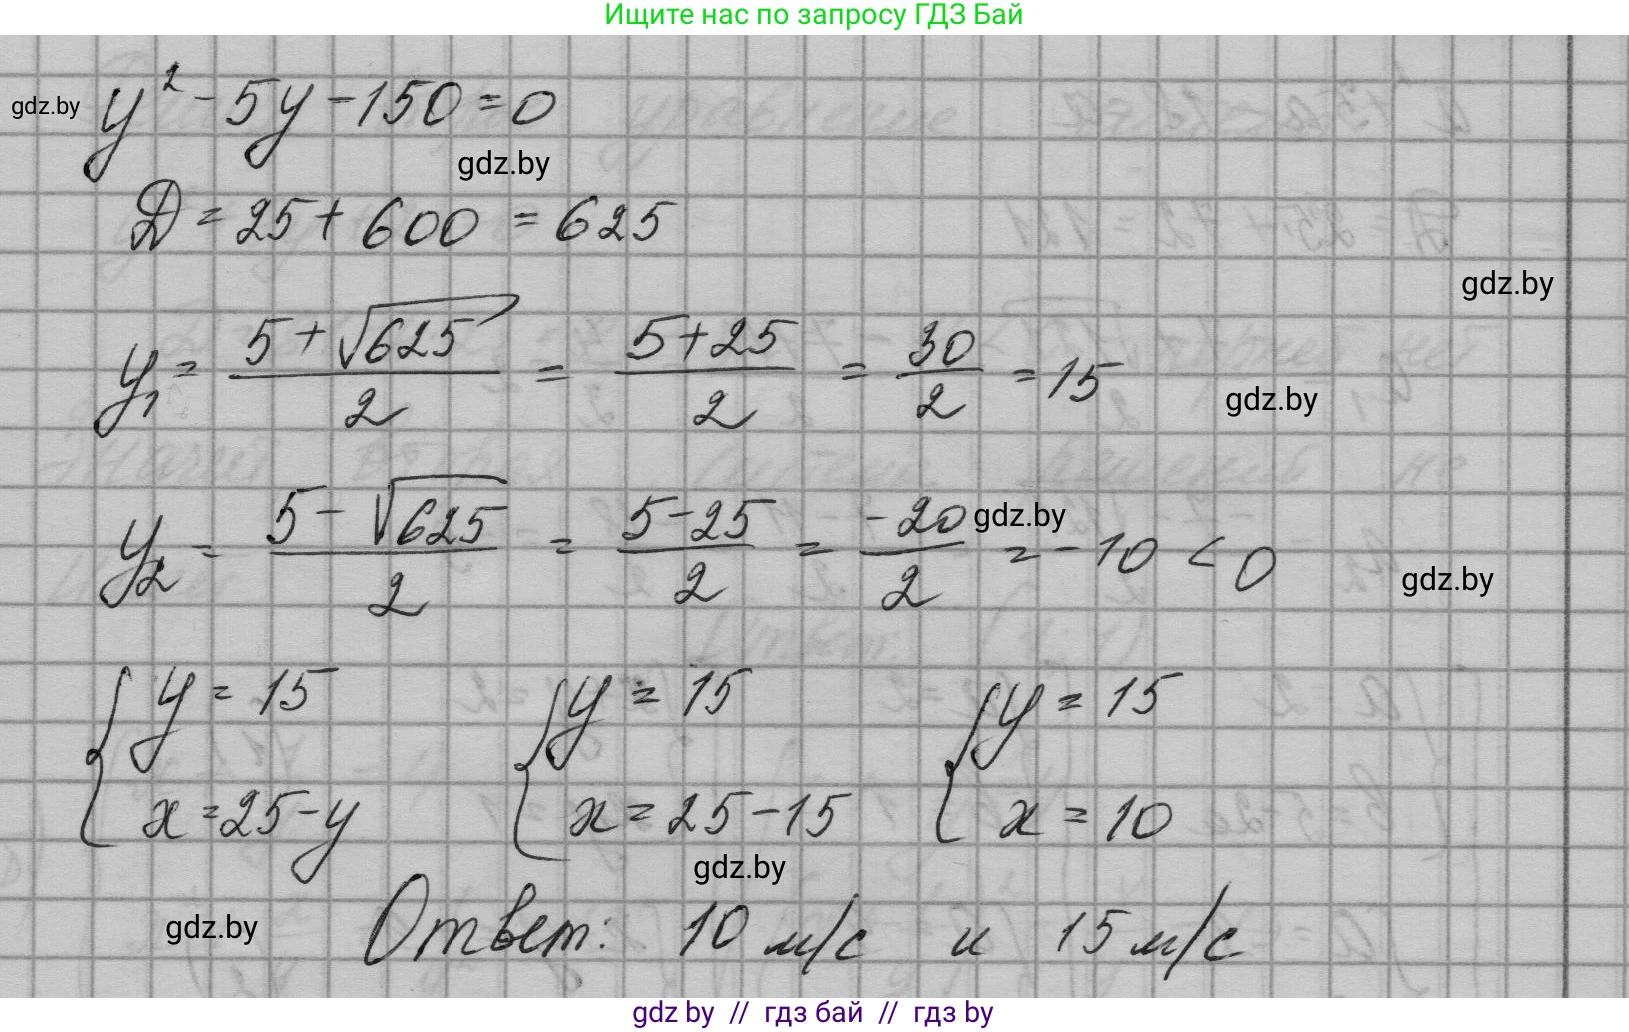 Ищите нас по запросу ГДЗ Бай
y² - 5y - 150 = 0
gdz.by
gdz.by
Д = 25 + 600 = 625
gdz.by
y₁ = (5 + √625)/2 = (5 + 25)/2 = 30/2 = 15
gdz.by
y₂ = (5 - √625)/2 = (5 - 25)/2 = -20/2 = -10 < 0
gdz.by
gdz.by
{ y = 15 { y = 15 { y = 15
x = 25 - y x = 25 - 15 x = 10
gdz.by
gdz.by
Ответ: 10 м/с и 15 м/с
gdz.by // гдз бай // гдз by